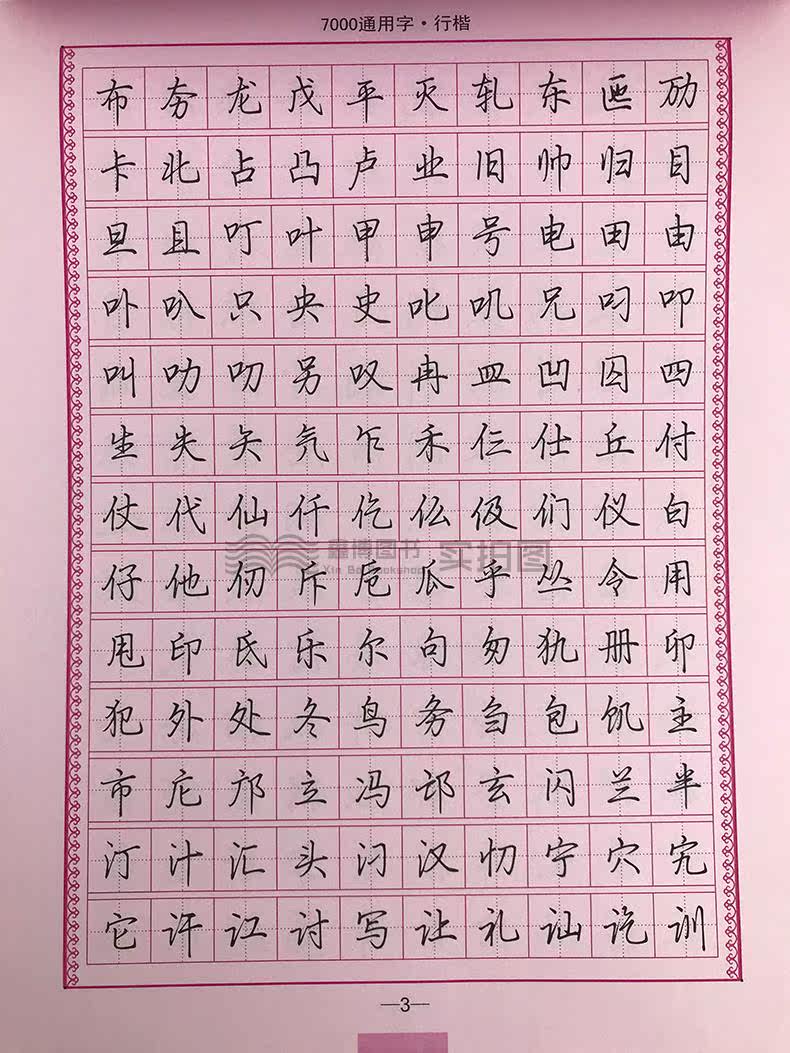 7000通用字·行楷
布夯龙戊平灭轧东匝劢
卡北占凸卢业旧帅归目
旦且叮叶甲申号电田由
卟叭只央史叱叽兄叼叩
叫叻叨另叹冉皿凹囚四
生失矢气乍禾仨仕丘付
仗代仙仟仡仫伋们仪白
仔他仞斥卮瓜乎丛令用
甩印氐乐尔句匆犰册卯
犯外处冬鸟务刍包饥主
市庀邝立冯邙玄闪兰半
汀汁汇头汈汉忉宁穴宄
它讦讧讨写让礼讪讫训
鑫博图书 实拍图
Xin Bo Bookshop
—3—